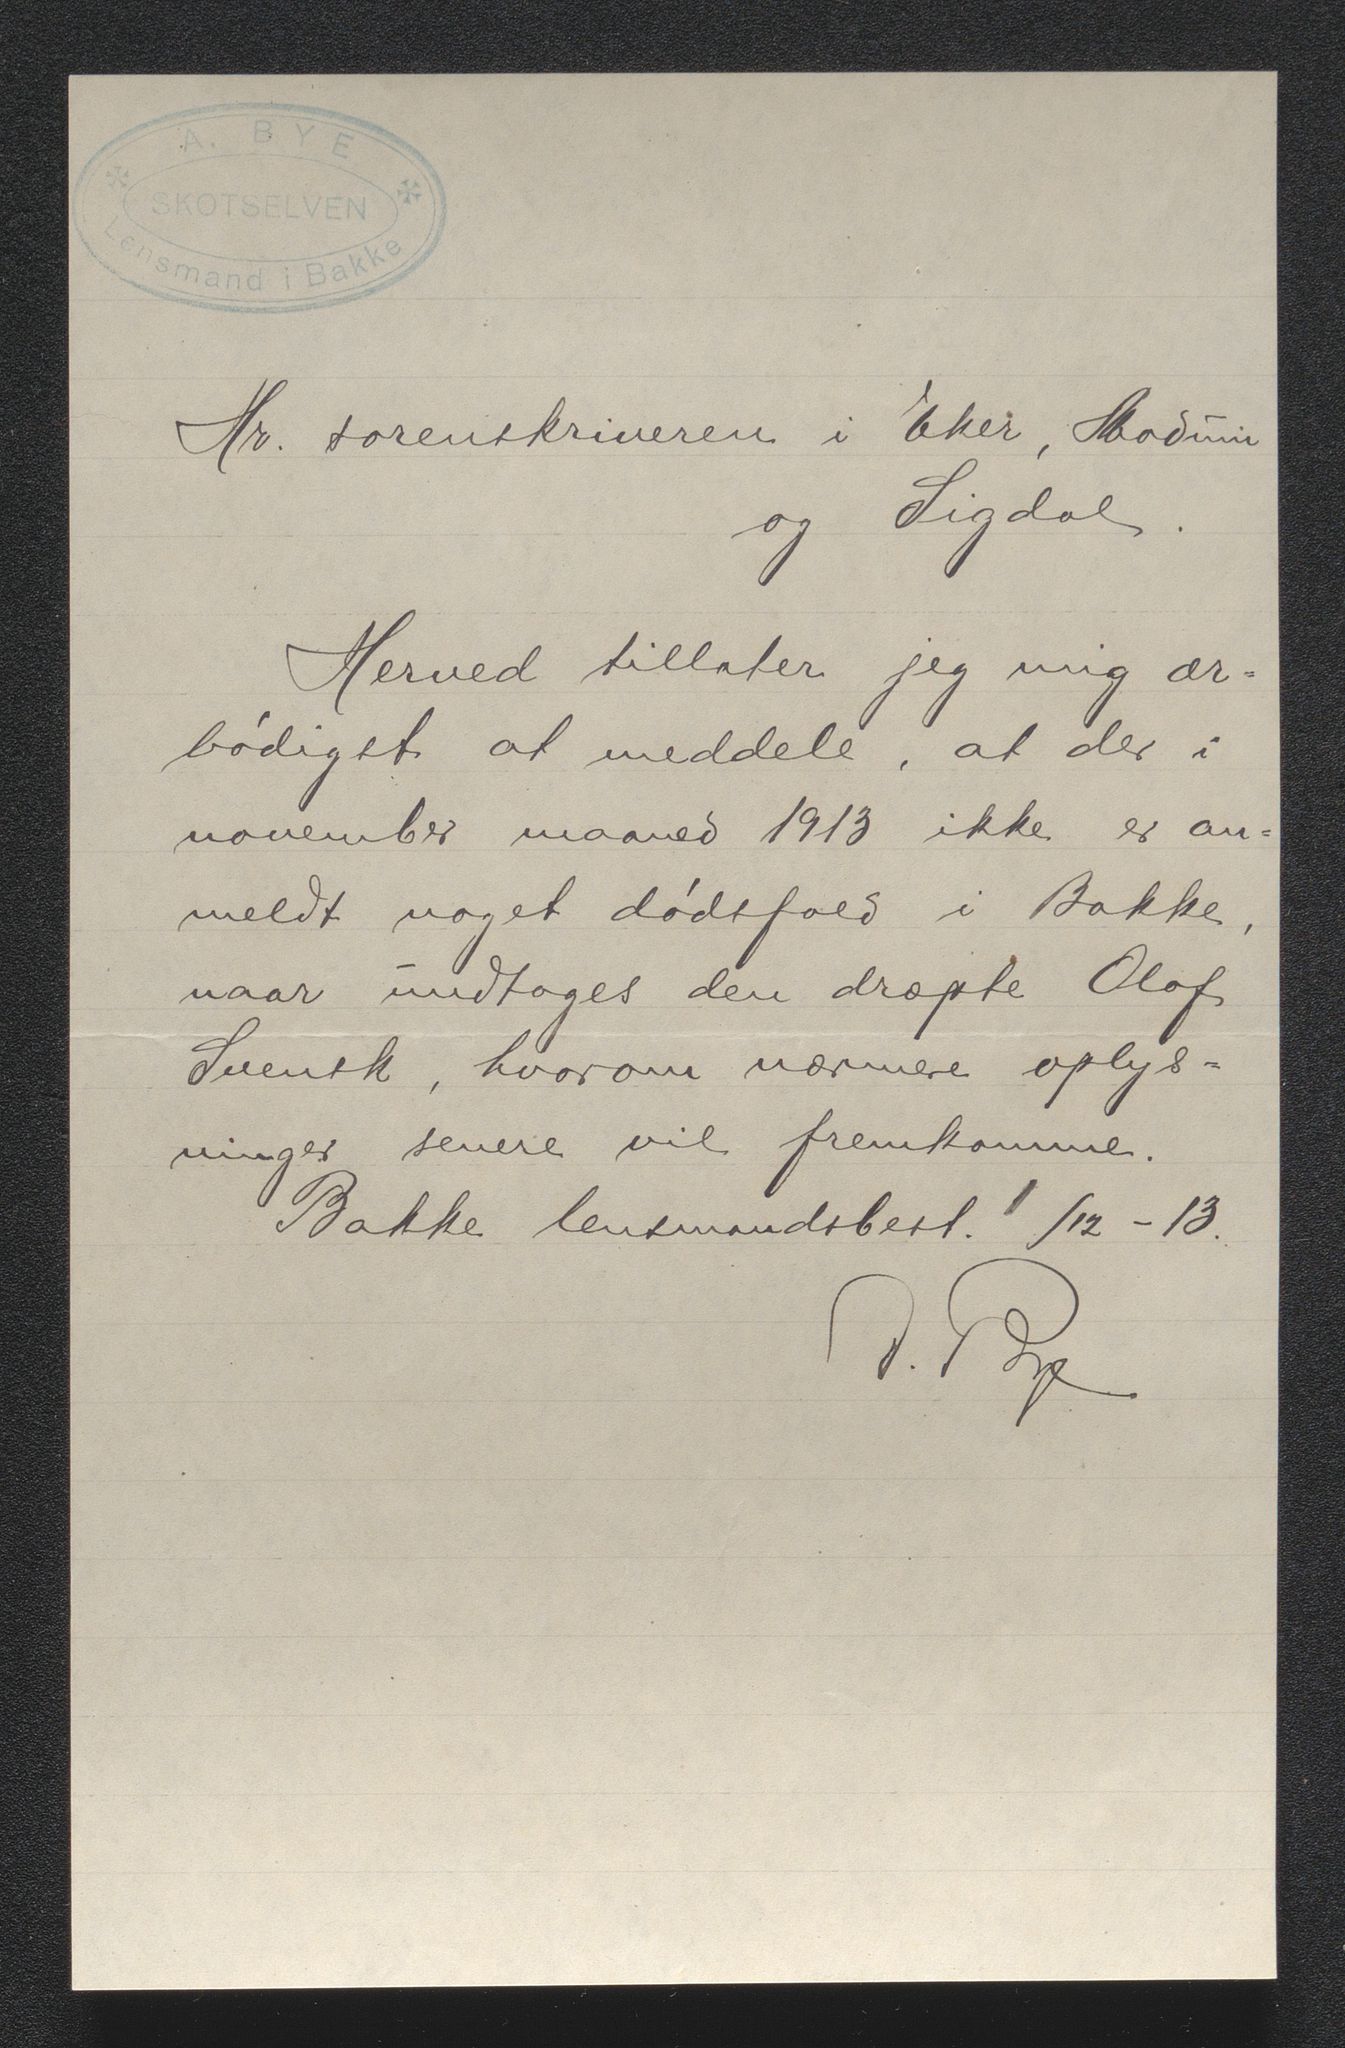 A. BYE
SKOTSELVEN
Lensmand i Bakke
Hr. sorenskriveren i Eker, Modum
og Sigdal.
Herved tillater jeg mig ær-
bødigst at meddele, at der i
november maaned 1913 ikke er an-
meldt noget dødsfald i Bakke,
naar undtages den dræpte Olaf
Svensk, hvorom nærmere oplys-
ninger senere vil fremkomme.
Bakke lensmandsbest. 1/12-13.
A. Bye